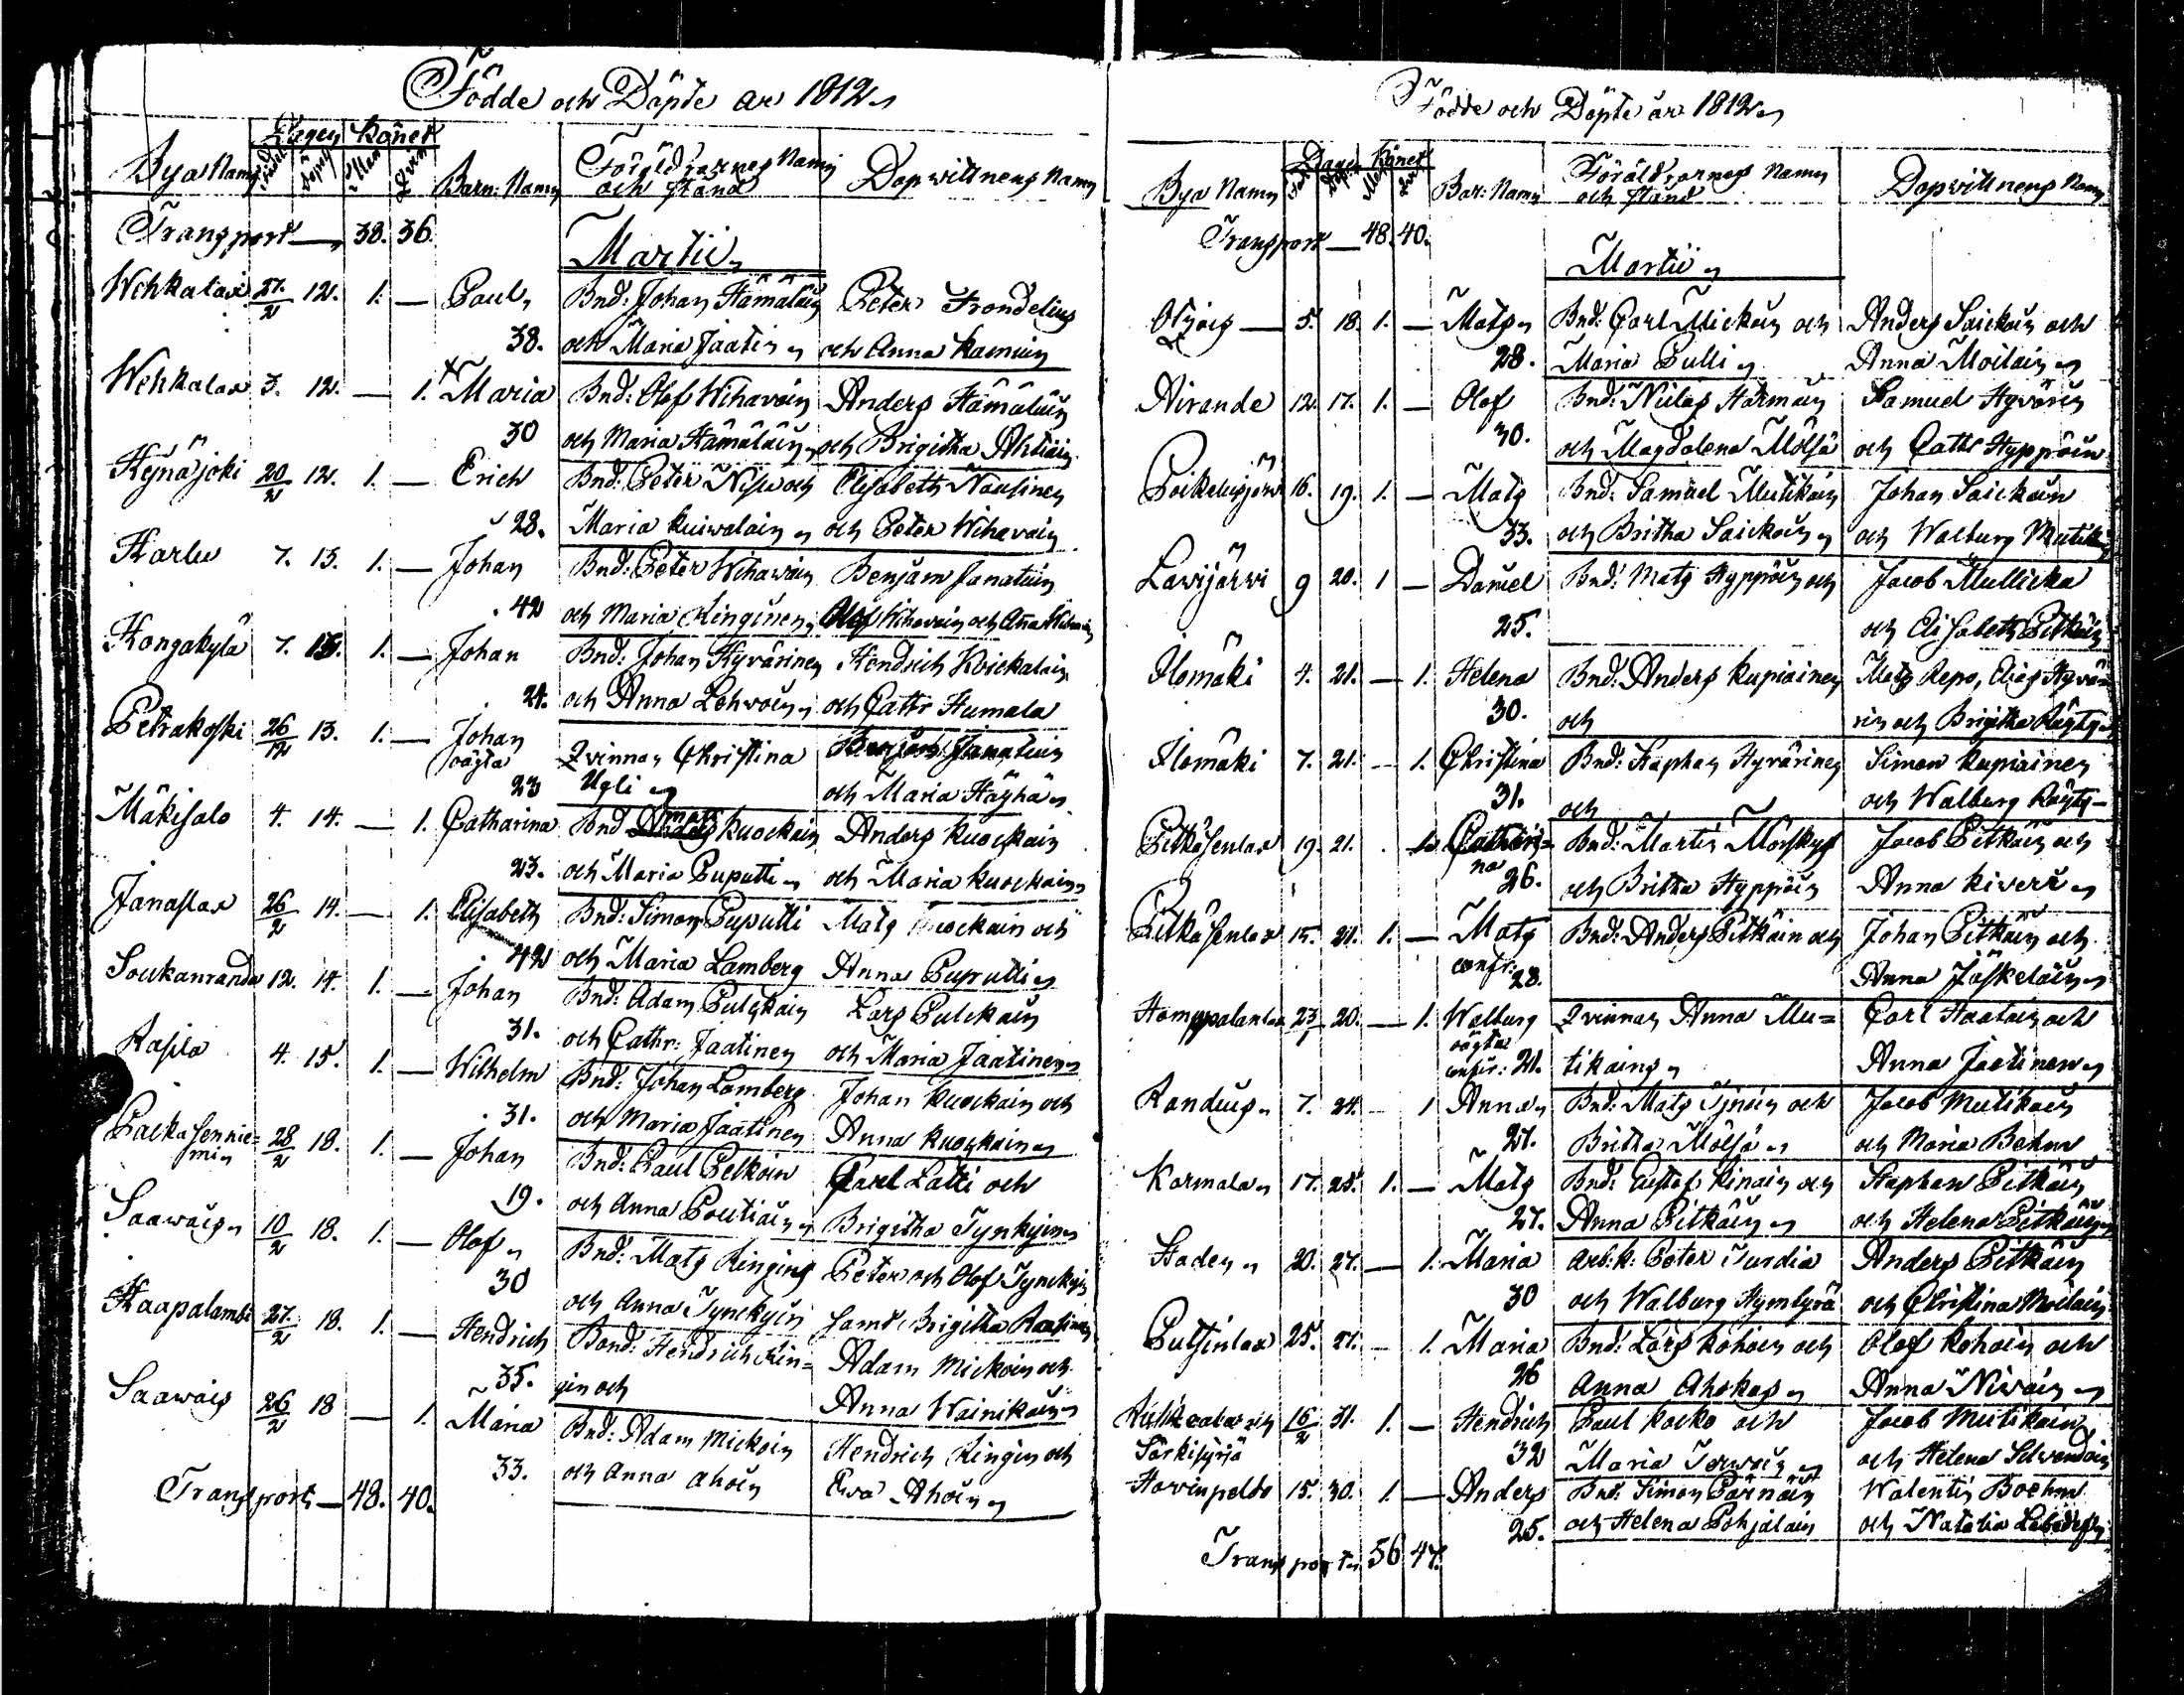 Födde och Döpte år 1812
Bya Namn Dagen Könet Barn: Namn Föräldrarnes Namn Dopwittnens Namn
Födel Döpel Man Qvin och stånd
Transport — 38. 36.
Martii
Wehkalax 27/2 12. 1. — Paul Bnd: Johan Hämäläin Peter Frondelius
38. och Maria Jaatin och Anna
Wehkalax 3. 12. — 1. Maria Bnd: Olof Wihavain Anders Hämäläin
30 och Maria Hämäläin och Brigitha Ahtiain
Kynäjoki 20/2 12. 1. — Erich Bnd: Peter och Elisabeth Nousinen
28. Maria Kuiwalain och Peter Wihavain
Harlu 7. 13. 1. — Johan Bnd: Peter Wihavain Benjam Janatuin
42 och Maria Ringinen Olof Wihavain och Ana
Kongakylä 7. 13. 1. — Johan Bnd: Johan Hyvärinen Hendrich Koickalain
24. och Anna Lehvoin och Cathr Humala
Petrakoski 26/12 13. 1. — Johan Qvinnan Christina Janatuin
oägta
23 Ugli och Maria Häyhä
Mäkisalo 4. 14. — 1. Catharina Bnd Mats Kuockain Anders Kuockain
23. och Maria Puputti och Maria Kuockain
Janaslax 26/2 14. — 1. Elisabeth Bnd: Simon Puputti Mats Kuockain och
42 och Maria Lamberg Anna Puputti
Soukanranda 12. 14. 1. — Johan Bnd: Adam Pulckain Lars Pulckain
31. och Cathr: Jaatinen och Maria Jaatinen
4. 15. 1. — Wilhelm Bnd: Johan Lamberg Johan Kuockain och
31. och Maria Jaatinen Anna Kuockain
28/2 18. 1. — Johan Bnd: Paul Pelkoin Carl Latti och
19. och Anna Poutiain Brigitha Tynkyin
Saawais 10/2 18. 1. — Olof Bnd: Mats Ringin Peter och Olof Tynckyin
30 och Anna Tynckyin samt Brigitha
Kaapalambi 27/2 18. 1. — Hendrich Bond: Hendrich Rin=
35. gin och Adam Mickoin och
Anna Wainikain
Saawais 26/2 18 — 1. Maria Bnd: Adam Mickoin Hendrich Ringin och
33. och Anna Ahoin Ewa Ahoin
Transport — 48. 40.
Födde och Döpte år 1812
Bya Namn Dagen Könet Bar: Namn Föräldrarnes Namn Dopwittnens Namn
och stånd
Transport — 48. 40.
Martii
5. 18. 1. — Mats Bnd: Carl Mickoin och Anders Saickoin och
28. Maria Pulli Anna Moilain
Airande 12. 17. 1. — Olof Bnd: Niclas Harmain Samuel Hyvärin
30. och Magdalena Mölsä och Cathr Hyppöin
16. 19. 1. — Mats Bnd: Samuel Mutikain Johan Saickoin
33. och Britha Saickoin och Walburg Mutik
Lavijärvi 9 20. 1 — Daniel Bnd: Mats Hyppöin och Jacob Mullicka
25. och Elisabeth Pitkäin
Ilomäki 4. 21. — 1. Helena Bnd: Anders Kupiainen Mats Repo, Elias Hyvä=
30. och rin och Brigitha
Ilomäki 7. 21. — 1. Christina Bnd: Staphan Hyvärinen Simon Kupiainen
31. och och Walburg
Pitkäsenlax 19. 21. . 1. Cathari= Bnd: Martin Jacob Pitkäin och
na
26. och Britha Hyppöin Anna
Pitkäsenlax 15. 21. 1. — Mats Bnd: Anders Pitkäin och Johan Pitkäin och
confr:
28. Anna Jäskeläin
23/1 20. — 1. Walburg Qvinnan Anna Mu= Carl Haatain och
oägta
confir: 21. tikain Anna Jaatinen
Randus 7. 24. — 1 Anna Bnd: Mats och Jacob Mutikain
27. Britha Mölsä och Maria Behm
Karmala 17. 25. 1. — Mats Bnd: Gustaf Kinain och Staphan Pitkäin
27. Anna Pitkäin och Helena Pitkäin
Staden 20. 27. — 1. Maria Arb.k: Peter Turdia Anders Pitkäin
30 och Walburg och Christina Moilain
Putsinlax 25. 27. — 1. Maria Bnd: Lars Kohoin och Olof Kohoin och
26 Anna Ahokas Anna Nivain
16/2 31. 1. — Hendrich Paul Kocko och Jacob Mutikain
Särkisyrjä 32 Maria Terwoin och Helena Silvendoin
Havinpeldo 15. 30. 1. — Anders Bnd: Simon Pärnäin Walentin Boehm
25. och Helena Pohjalain och Natalia
Transport 56 47.